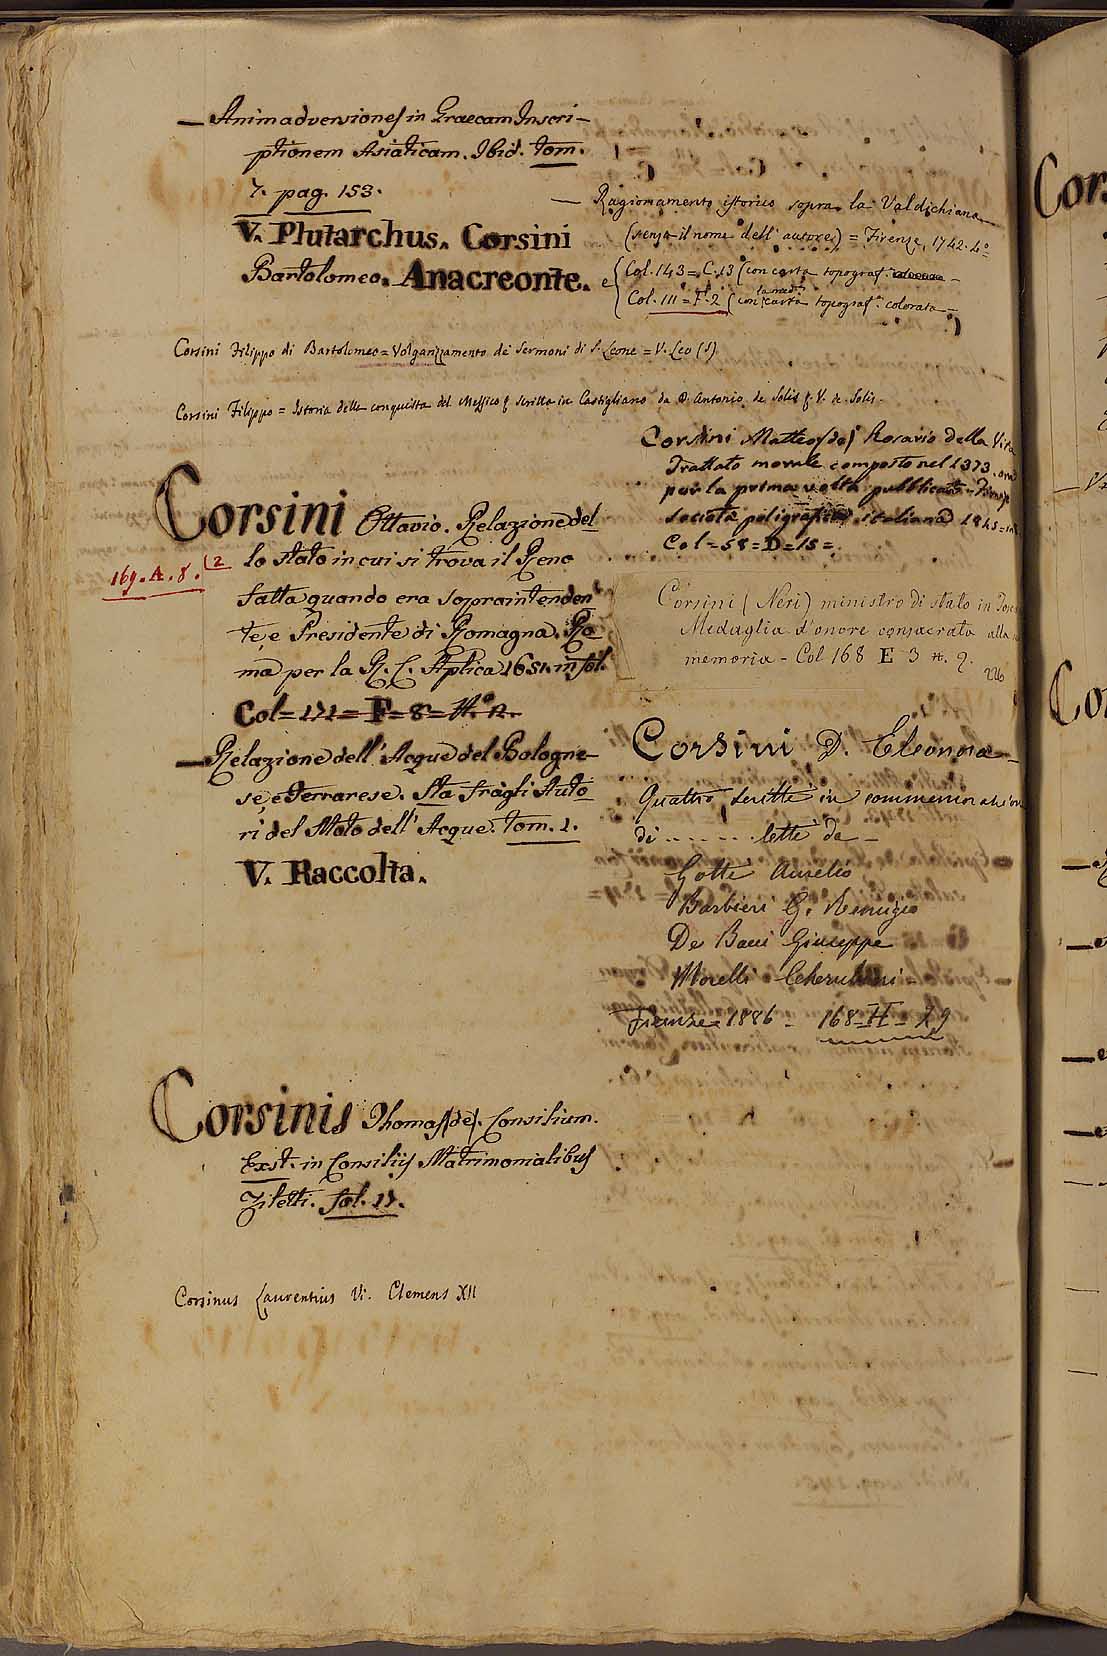 — Animadversiones in Graecam Inscri-
ptionem Asiaticam. Ibid. tom.
7. pag. 153.
V. Plutarchus. Corsini
Bartolomeo. Anacreonte.
— Ragionamento istorico sopra la Valdichiana
(senza il nome dell' autore) = Firenze, 1742. 4.°
e { Col. 143 = C. 13 (con carta topograf.
Col. 111 = F. 2 (con la med.ᵃ carta topograf.ᵃ colorata —)
Corsini Filippo di Bartolomeo = Volgarizzamento dei Sermoni di S. Leone = V. Leo (S)
Corsini Filippo = Istoria della conquista del Messico scritta in Castigliano da D. Antonio de Solis V. de Solis.
Corsini Matteo (de) Rosario della Vita
Trattato morale composto nel 1373. ora
per la prima volta pubblicato.
Società poligrafica italiana 1845 =
Col = 58 = D = 15 =
Corsini Ottavio. Relazione del-
lo stato in cui si trova il Reno
169. A. 8. (2
fatta quando era Sopraintenden
te, e Presidente di Romagna. Ro
ma per la R. C. Aplica 1651. in fol.
Col = 121 = F = 8 = N.°
Corsini (Neri) ministro di stato in
Medaglia d'onore consacrata alla
memoria = Col 168 E 3 n. 9.
226
— Relazione dell' Acque del Bologne
se, e Ferrarese. Sta fragli Auto
ri del Moto dell' Acque. tom. 1.
V. Raccolta.
Corsini D. Eleonora —
Quattro scritti in commemorazion
di ........ letti da —
Gotti Aurelio
Barbieri G. Remigio
De Bacci Giuseppe
Morelli Cherubini
Firenze 1886 — 168 = H = 29
Corsinis Thomas (de). Consilium.
Exst. in Consiliis Matrimonialibus
Ziletti. fol. 17.
Corsinus Laurentius V. Clemens XII
Cors
Cor